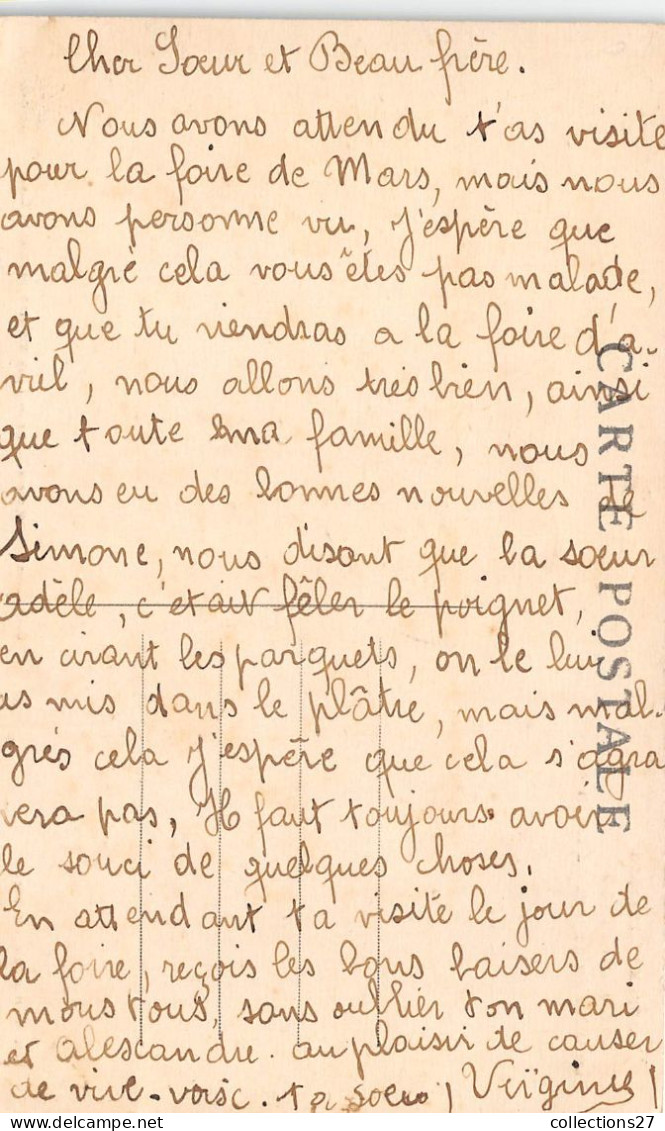 Cher Sœur et Beau frère.
Nous avons attendu t'as visite
pour la foire de Mars, mais nous
avons personne vu, J'espère que
malgré cela vous êtes pas malade,
et que tu viendras a la foire d'a-
vril, nous allons très bien, ainsi
que toute ma famille, nous
avons eu des bonnes nouvelles de
Simone, nous disant que la sœur
adèle, c'etait fêler le poignet,
en cirant les parquets, on le lui
as mis dans le plâtre, mais mal-
grés cela J'espère que cela s'agra
vera pas, Il faut toujours avoir
le souci de quelques choses.
En attendant ta visite le jour de
la foire, reçois les bons baisers de
nous tous, sans oublier ton mari
et Alescandre. au plaisir de causer
de vive-voix. ta soeur Virginie
CARTE POSTALE
delcampe.net
collections27